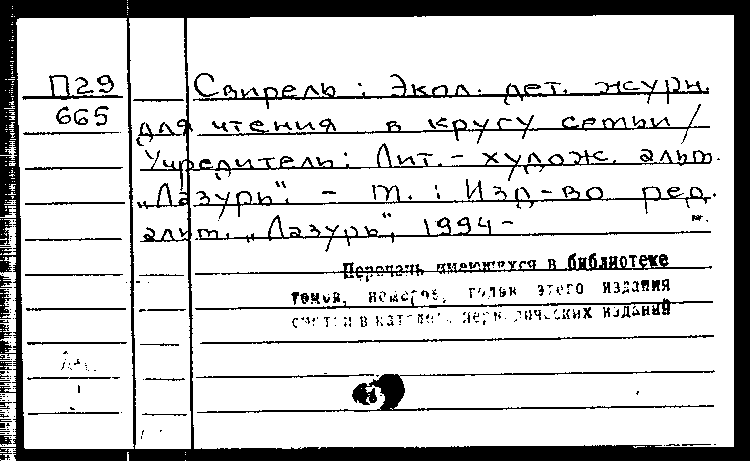 П29 Свирель : Экол. дет. журн.
665 для чтения в кругу семьи /
Учредитель: Лит.- худож. альм.
„Лазурь". - М. : Изд-во ред.
альм. „Лазурь", 1994-
Перечень имеющихся в библиотеке
томов, номеров, годов этого издания
смотри в каталоге периодических изданий